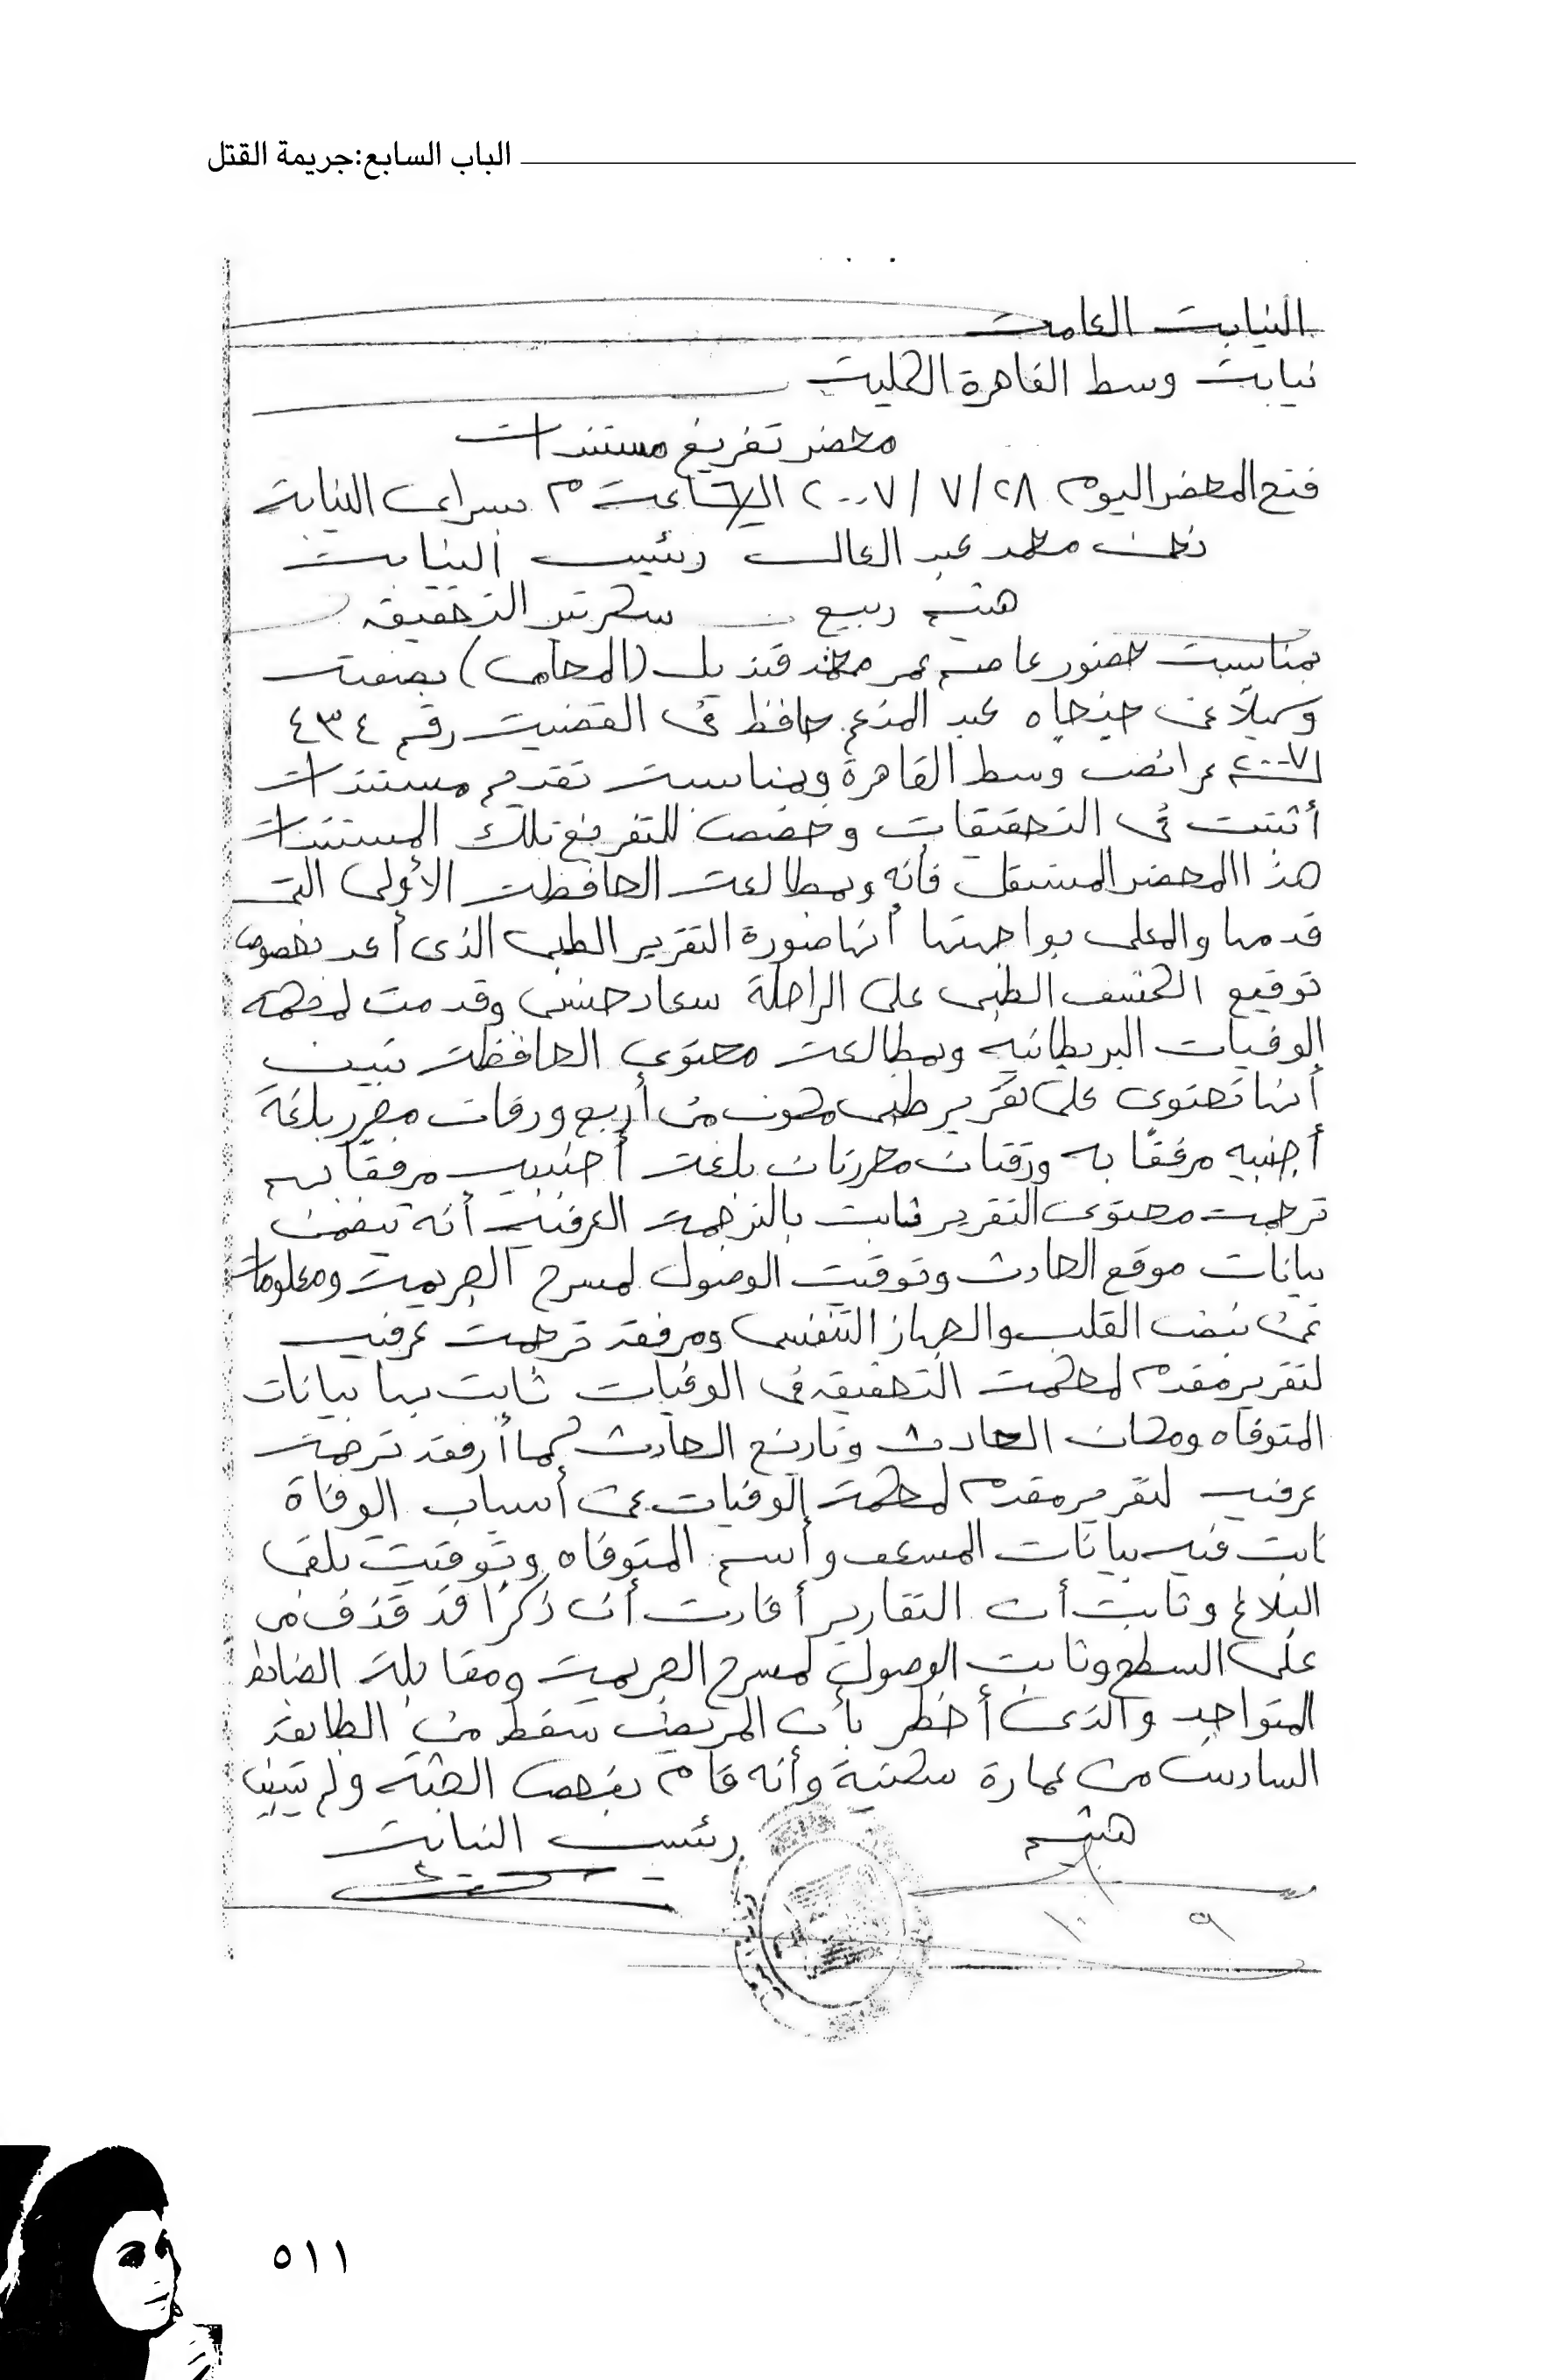 الباب السابع:جريمة القتل
النيابة العامة
نيابة وسط القاهرة الكلية
محضر تفريغ مستندات
فتح المحضر اليوم ٢٨/٧/٢٠٠٧ الساعة ٦ م بسراى النيابة
نحن محمد عبد العال رئيس النيابة
هيثم ربيع سكرتير التحقيق
بمناسبة حضور عاصم عمر محمد قنديل (المحامى) بصفته
وكيلاً عن جنجاه عبد المنعم حافظ فى القضية رقم ٤٣٤
لسنة ٢٠٠٧ عرائض وسط القاهرة وبمناسبة تقديم مستندات
أثبتت فى التحقيقات وخصص للتفريغ تلك المستندات
هذا المحضر المستقل فأنه وبمطالعة الحافظة الأولى التى
قدمها والمعلى بواجهتها أنها صورة التقرير الطبى الذى أعد بخصوص
توقيع الكشف الطبى على الراحلة سعاد حسنى وقدمت لمحكمه
الوفيات البريطانيه وبمطالعة محتوى الحافظة تبين
أنها تحتوى على تقرير طبى مكون من أربع ورقات محرر بلغة
أجنبيه مرفقًا به ورقتان محررتان بلغة أجنبيه مرفقًا به
ترجمة محتوى التقرير ثابت بالترجمة العرفيه أنه تضمن
بيانات موقع الحادث وتوقيت الوصول لمسرح الجريمة ومعلومات
عن نبض القلب والجهاز التنفسى ومرفقه ترجمة عرفيه
لتقرير مقدم لمحكمة التحقيق فى الوفيات ثابت بها بيانات
المتوفاه ومكان الحادث وتاريخ الحادث كما أرفقه ترجمة
عرفيه لتقرير مقدم لمحكمة الوفيات عن أسباب الوفاة
ثابت فيه بيانات المسعف وأسم المتوفاه وتوقيت تلقى
البلاغ وثابت أن التقارير أفادت أن ذكرًا قد قذف من
على السطح وثابت الوصول لمسرح الجريمة ومقابلة الضابط
المتواجد والذى أخطر بأن المريض سقط من الطابق
السادس من عمارة سكنية وأنه قام بفحص الجثه ولم يتبين
هيثم رئيس النيابة
٥١١